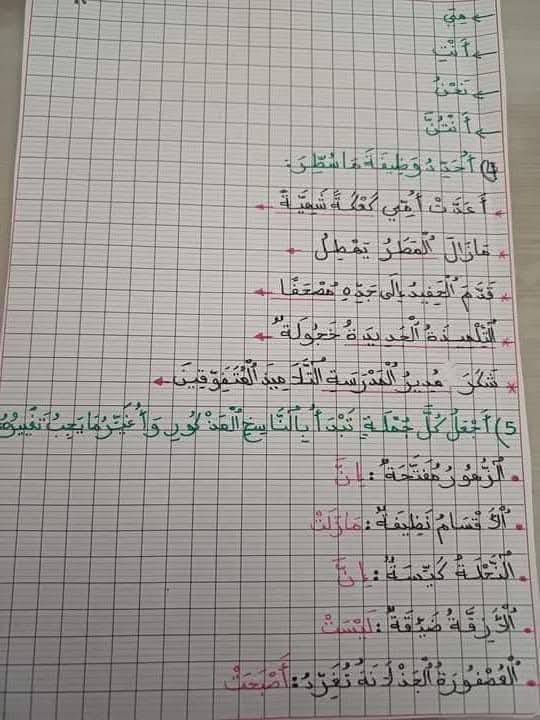 ← هِيَ
← أَنْتِ
← نَحْنُ
← أَنْتُنَّ
4) أُحَدِّدُ وَظِيفَةَ مَا سُطِّرَ:
* أَعَدَّتْ أُمِّي كَعْكَةً شَهِيَّةً ←
* مَازَالَ الْمَطَرُ يَهْطِلُ ←
* قَدَّمَ الْحَفِيدُ إِلَى جَدِّهِ مُصْحَفًا ←
* التِّلْمِيذَةُ الْجَدِيدَةُ خَجُولَةٌ ←
* شَكَرَ مُدِيرُ الْمَدْرَسَةِ التَّلَامِيذَ الْمُتَفَوِّقِينَ ←
5) أَجْعَلُ كُلَّ جُمْلَةٍ تَبْدَأُ بِالنَّاسِخِ الْمَذْكُورِ وَأُغَيِّرُ مَا يَجِبُ تَغْيِيرُهُ
• الزُّهُورُ مُفَتَّحَةٌ: إِنَّ
• الْأَقْسَامُ نَظِيفَةٌ: مَازَالَتْ
• النَّحْلَةُ كَيِّسَةٌ: إِنَّ
• الْأَزِقَّةُ ضَيِّقَةٌ: لَيْسَتْ
• الْعُصْفُورَةُ الْجَذْلَانَةُ تُغَرِّدُ: أَصْبَحَتْ